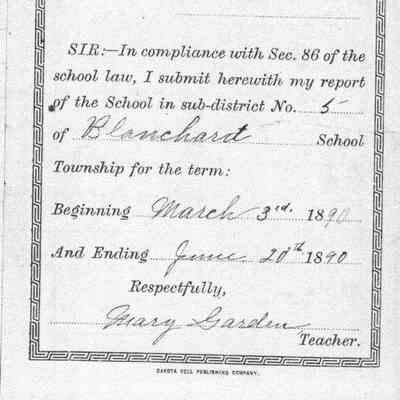 SIR:—In compliance with Sec. 86 of the
school law, I submit herewith my report
of the School in sub-district No. 5
of Blanchard School
Township for the term:
Beginning March 3rd. 1890
And Ending June 20th 1890
Respectfully,
Mary Garden
Teacher.
DAKOTA BELL PUBLISHING COMPANY.